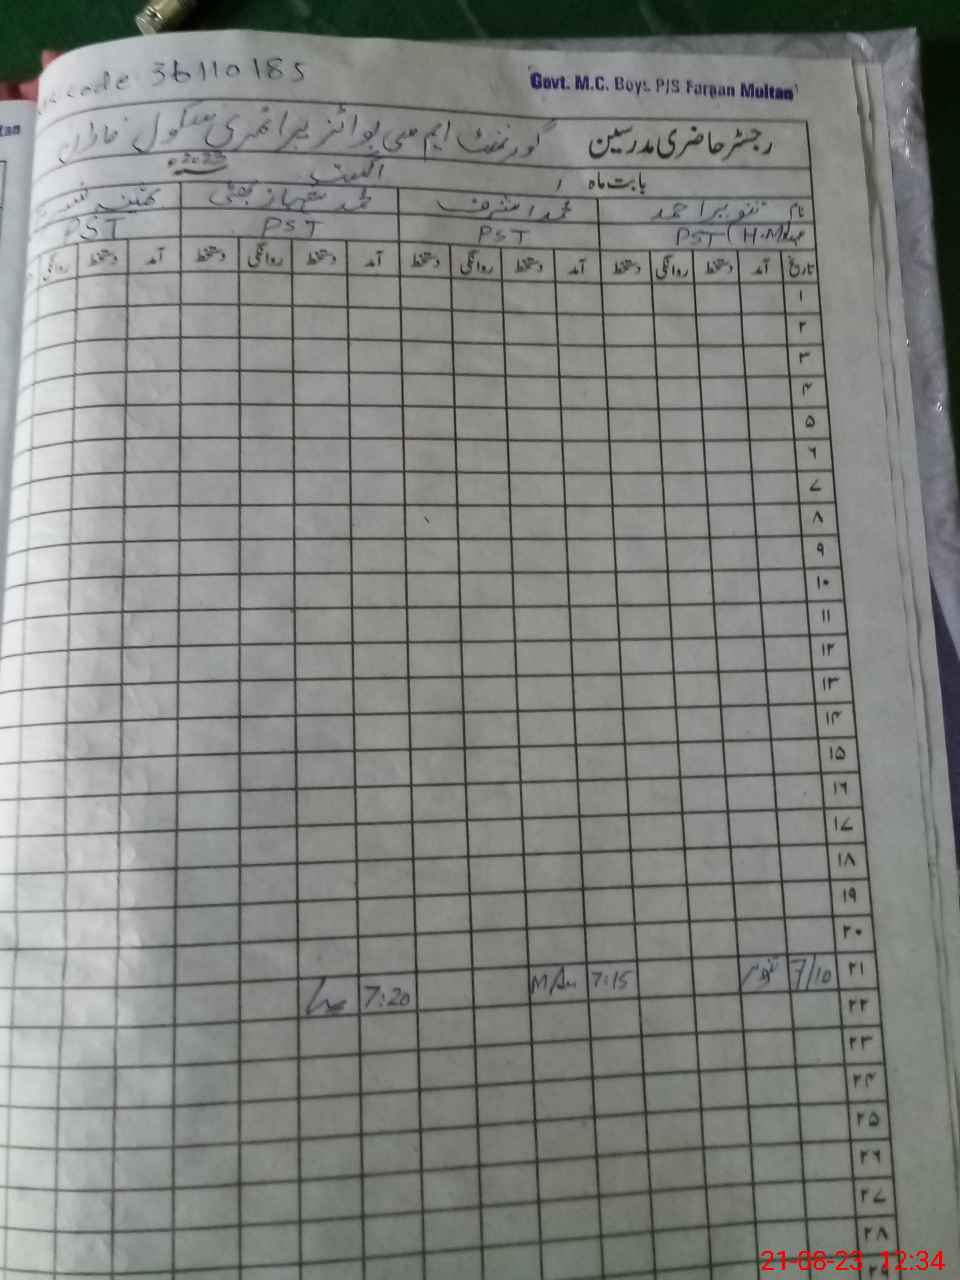 code 36110185
Govt. M.C. Boys. P/S Farqan Multan
رجسٹر حاضری مدرسین گورنمنٹ ایم سی بوائز پرائمری سکول
بابت ماہ اگست 2023
نام تنویر احمد محمد اشرف محمد شہباز بھٹی
عہدہ PST (H.M) PST PST PST
تاریخ آمد دستخط روانگی دستخط آمد دستخط روانگی دستخط آمد دستخط روانگی دستخط آمد دستخط روانگی
۱
۲
۳
۴
۵
۶
۷
۸
۹
۱۰
۱۱
۱۲
۱۳
۱۴
۱۵
۱۶
۱۷
۱۸
۱۹
۲۰
۲۱ 7/10 تنویر 7:15 7:20
۲۲
۲۳
۲۴
۲۵
۲۶
۲۷
۲۸
۲۹
21-08-23 12:34